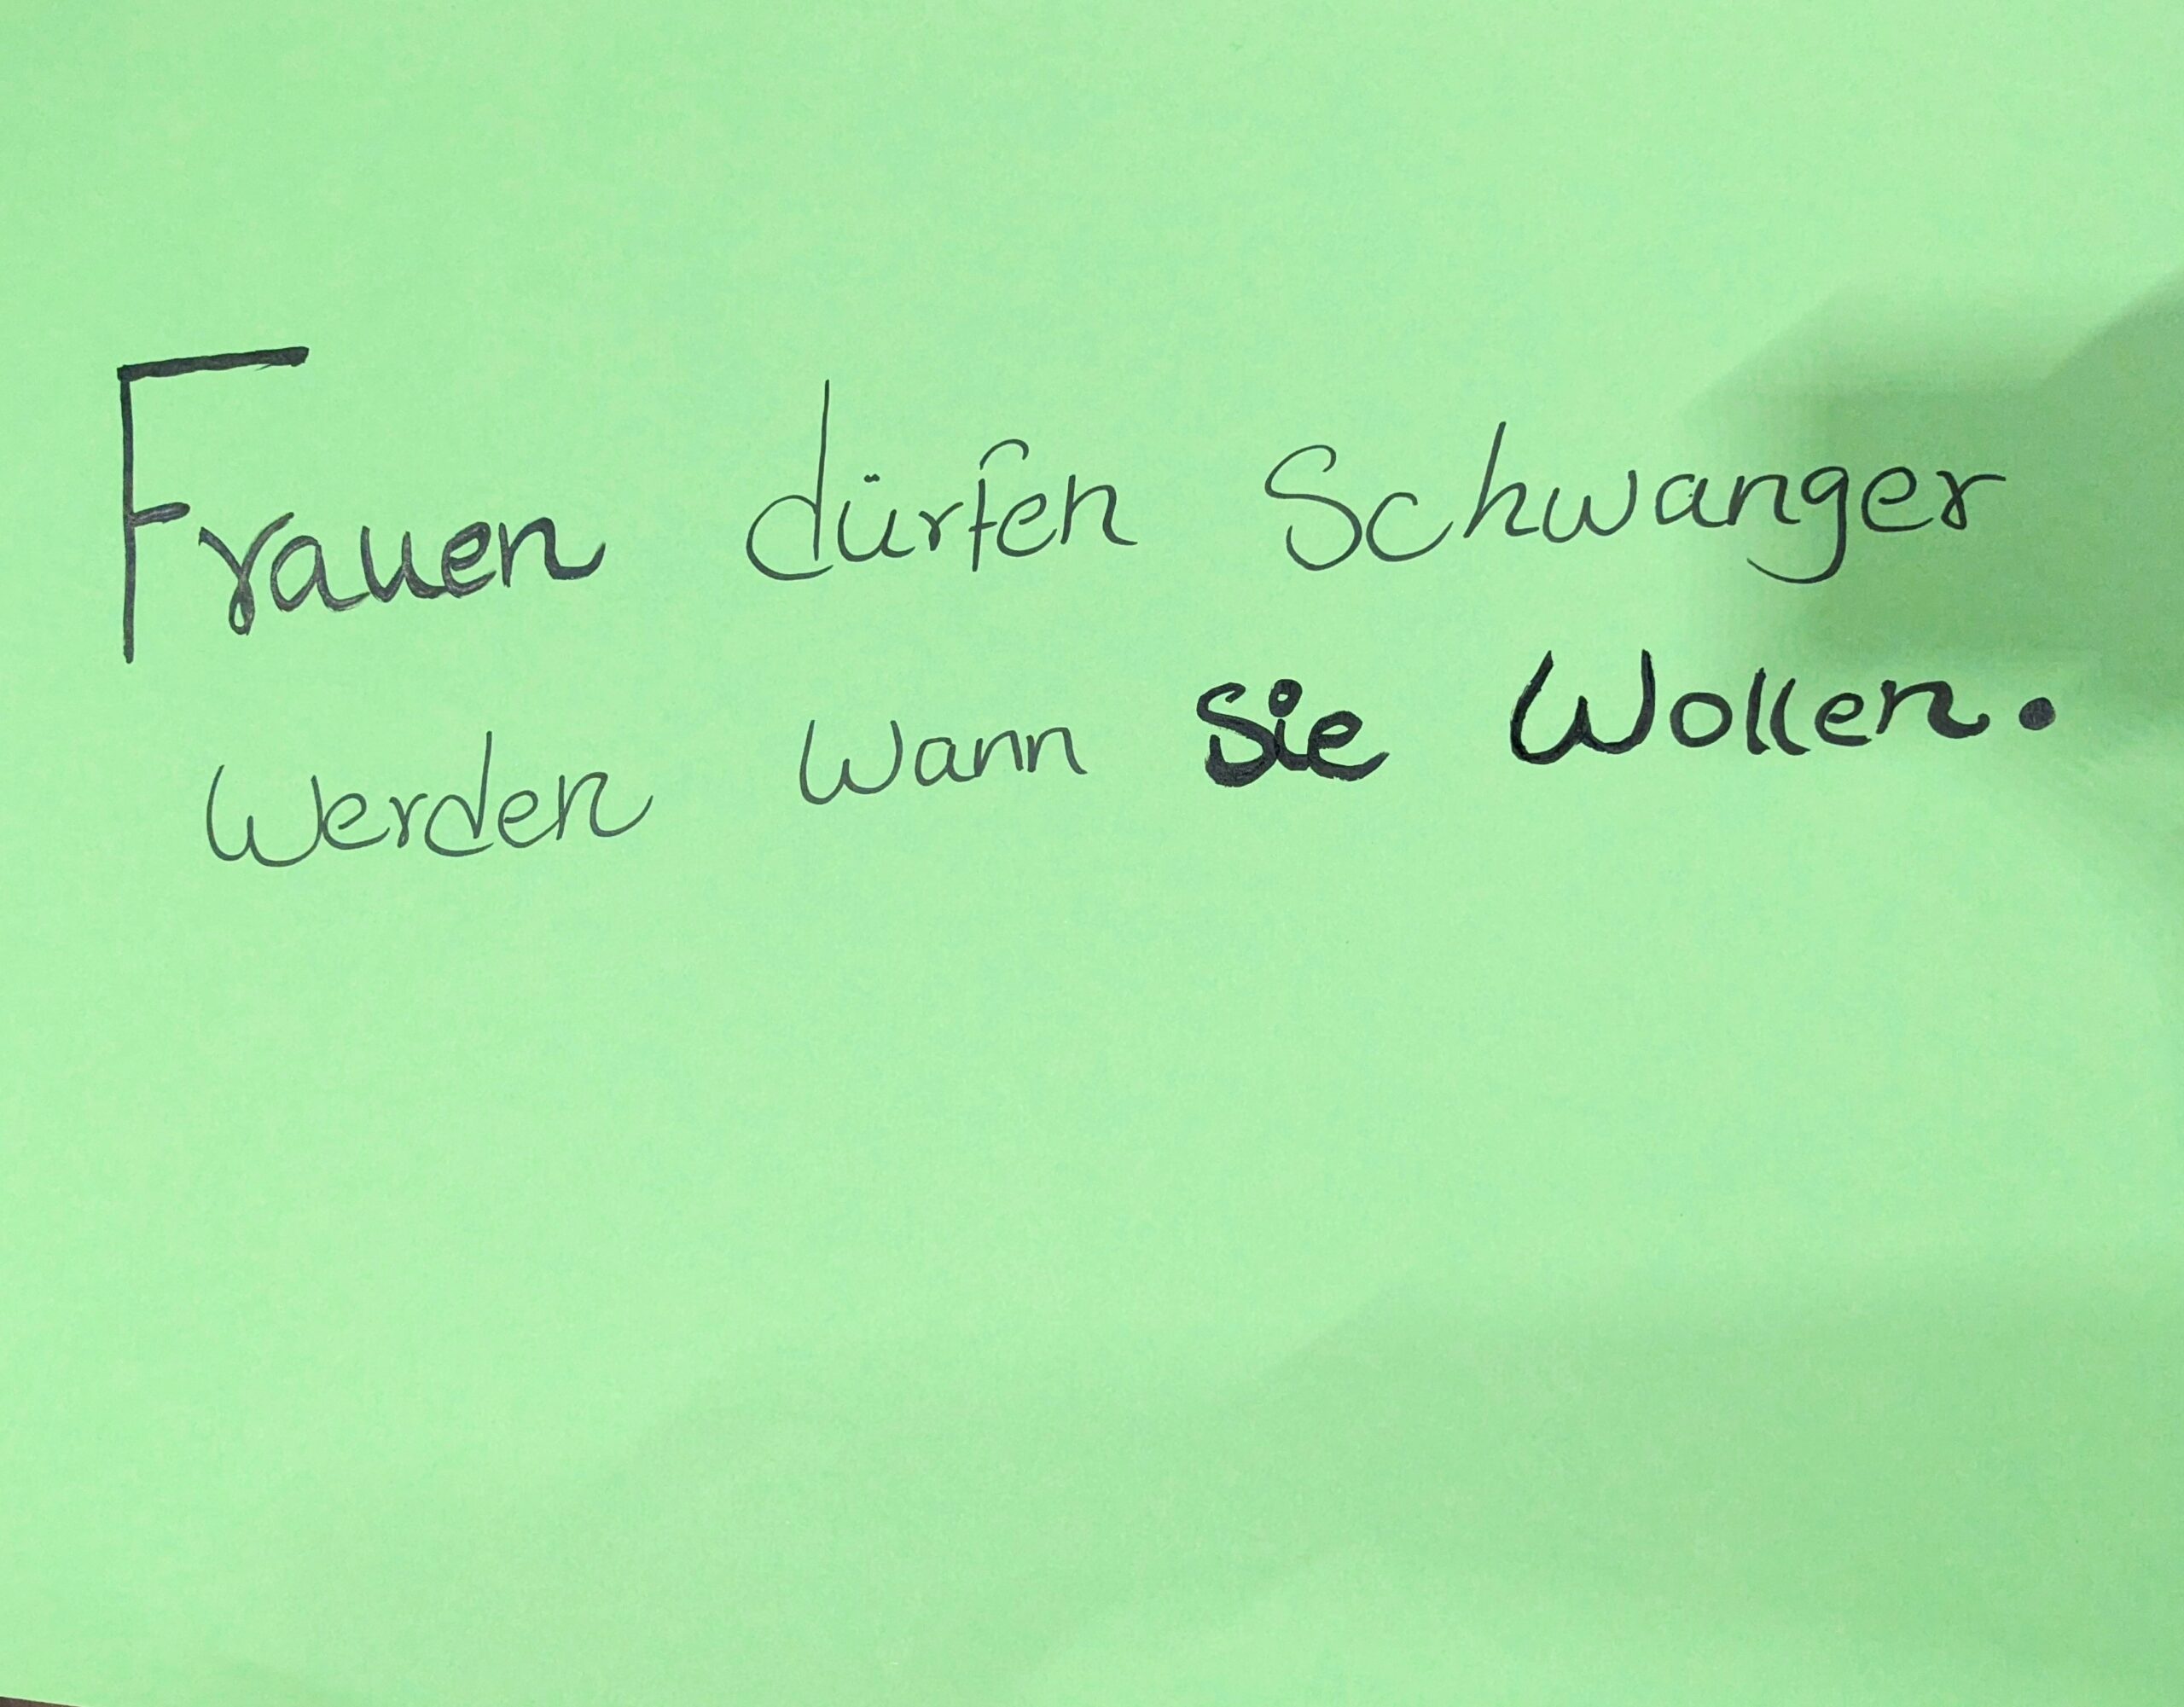 Frauen dürfen Schwanger
Werden Wann Sie Wollen.